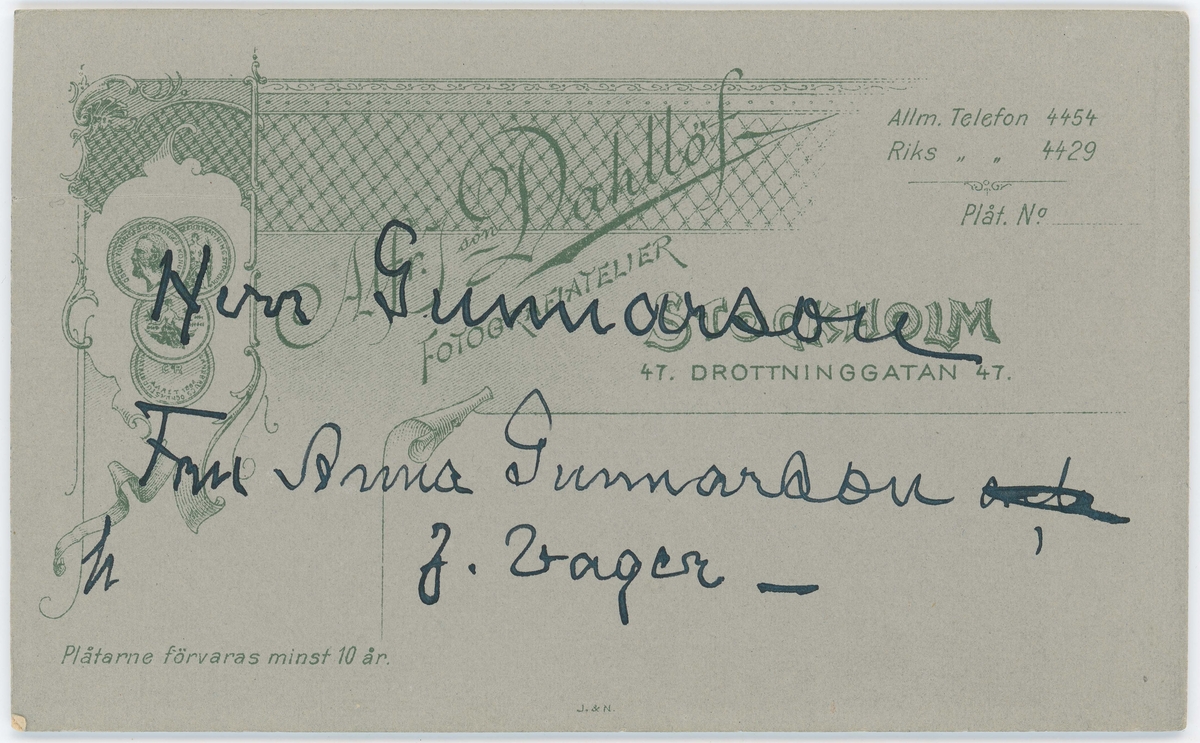 Allm. Telefon 4454
Riks „ „ 4429
Plåt. No
Dahllöf
son
FOTOGRAFIATELIER
STOCKHOLM
47. DROTTNINGGATAN 47.
Herr Gunnarson
Fru Anna Gunnarson
f. Vager —
Plåtarne förvaras minst 10 år.
J. & N.